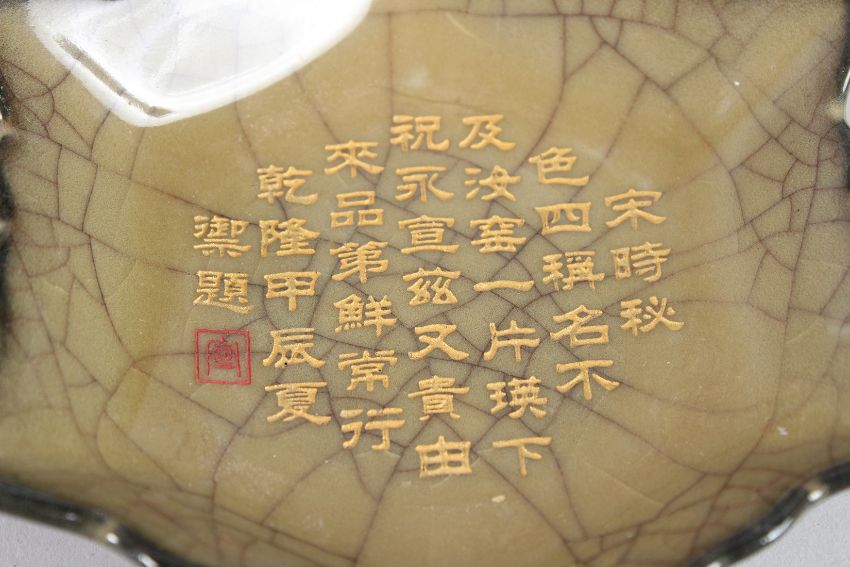 宋時秘
色四稱名不
及汝窑一片瑛下
祝永宣茲又貴由
來品第鮮常行
乾隆甲辰夏
御題